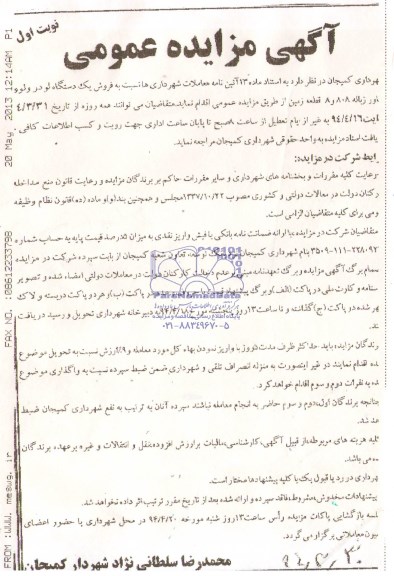 نوبت اول
آگهی مزایده عمومی
شهرداری کمیجان در نظر دارد به استناد ماده ۱۳ آئین نامه معاملات شهرداری ها نسبت به فروش یک دستگاه لودر ولوو
زباله ۸۰۸ و ۸ قطعه زمین از طریق مزایده عمومی اقدام نماید. متقاضیان می توانند همه روزه از تاریخ ۴/۳/۳۱
۹۴/۴/۱۶ به غیر از ایام تعطیل از ساعت ۸ صبح تا پایان ساعت اداری جهت رویت و کسب اطلاعات کافی
یافت اسناد مزایده به واحد حقوقی شهرداری کمیجان مراجعه نماید.
ایط شرکت در مزایده:
رعایت کلیه مقررات و بخشنامه های شهرداری و سایر مقررات حاکم بر برندگان مزایده و رعایت قانون منع مداخله
رکنان دولت در معاملات دولتی و کشوری مصوب ۱۳۳۷/۱۰/۲۲ مجلس و همچنین بند لو ماده (ده) قانون نظام وظیفه
ومی برای کلیه متقاضیان الزامی است.
متقاضیان شرکت در مزایده با ارائه ضمانت نامه بانکی یا فیش واریز نقدی به میزان ۵ درصد قیمت پایه به حساب شماره
۳۵۰۹-۱۱۱-۲۲۸۰۹۲ بنام شهرداری کمیجان شعبه کمیجان از بابت سپرده شرکت در مزایده
مهام برگ آگهی مزایده و برگ تعهدنامه عدم دخالت کارکنان دولت در معاملات دولتی امضاء شده و تصویر
سنامه و کارت ملی در پاکت (الف) و برگ پیشنهاد در پاکت (ب) و هر دو پاکت دربسته و لاک
هر شده در پاکت (ج) گذاشته و تا ساعت ۱۳ روز پنجشنبه مورخ ۹۴/۴/۱۸ به دبیرخانه شهرداری تحویل و رسید دریافت
ند.
رندگان مزایده باید حداکثر ظرف مدت ۷ روز با واریز نمودن بهاء کل مورد معامله و ۹٪ ارزش نسبت به تحویل موضوع
ده اقدام نمایند در غیر اینصورت به منزله انصراف تلقی و شهرداری ضمن ضبط سپرده نسبت به واگذاری موضوع
ده به نفرات دوم و سوم اقدام خواهد کرد.
چنانچه برندگان اول، دوم و سوم حاضر به انجام معامله نباشند سپرده آنان به ترتیب به نفع شهرداری کمیجان ضبط
هد شد.
کلیه هزینه های مربوطه از قبیل آگهی، کارشناسی، مالیات بر ارزش افزوده، نقل و انتقالات و غیره بر عهده برندگان
ده می باشد.
هرداری در رد یا قبول یک یا کلیه پیشنهادها مختار است.
پیشنهادات مخدوش، مشروط، فاقد سپرده و ارائه شده بعد از تاریخ مقرر ترتیب اثر داده نخواهد شد.
لسه بازگشایی پاکات مزایده رأس ساعت ۱۳ روز شنبه مورخه ۹۴/۴/۲۰ در محل شهرداری با حضور اعضای
یون معاملاتی برگزار می گردد.
محمدرضا سلطانی نژاد شهردار کمیجان
۹۴،۳،۳۰
۰۲۱-۸۸۳۴۹۶۷۰-۵
20 May 2013 12:14AM P1
FAX NO. :08612233798
FROM :WWW. me@wg.ir